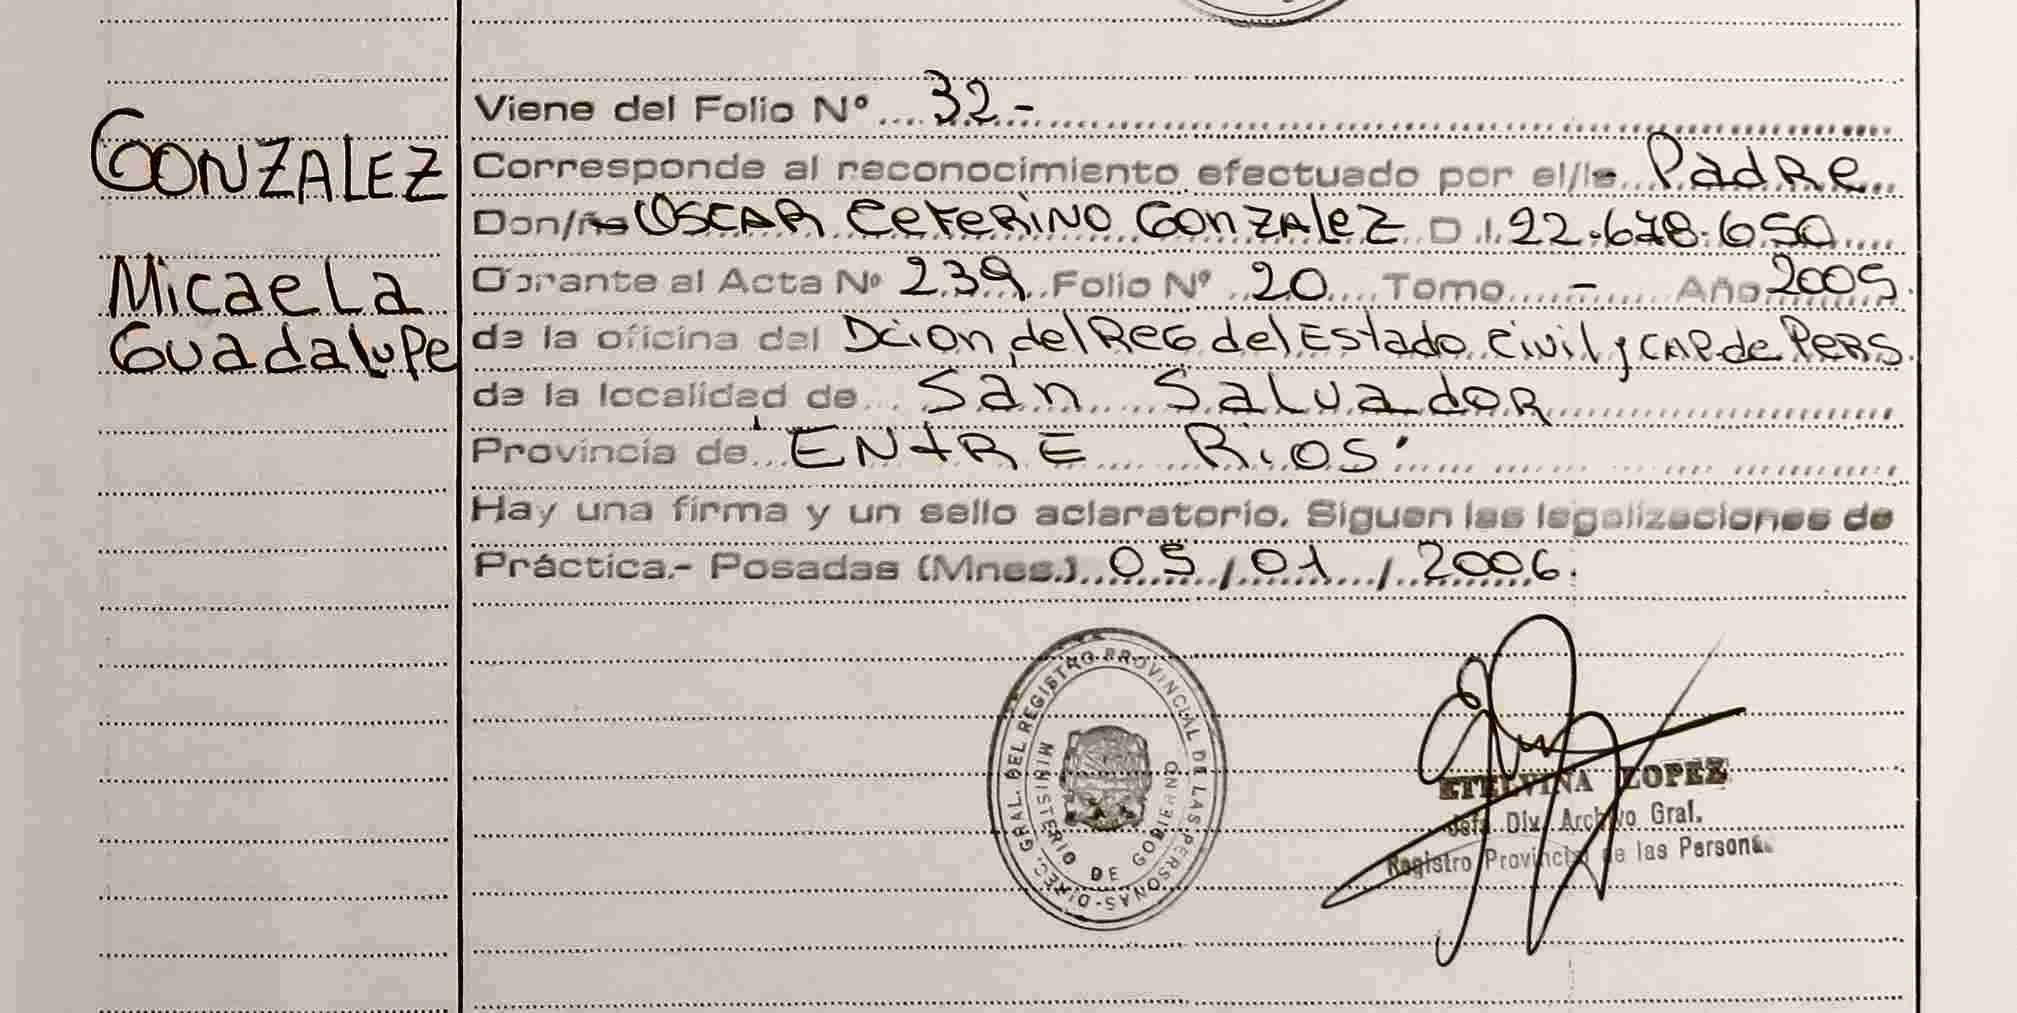 Viene del Folio Nº 32-
GONZALEZ
Corresponde al reconocimiento efectuado por el/la Padre
Don/ña OSCAR CEFERINO GONZALEZ D.I. 22.678.650
Micaela
Obrante al Acta Nº 239 Folio Nº 20 Tomo - Año 2005
Guadalupe
de la oficina del Dcion del Reg del Estado Civil y CAP. de PERS
de la localidad de San Salvador
Provincia de ENTRE RIOS
Hay una firma y un sello aclaratorio. Siguen las legalizaciones de
Práctica.- Posadas (Mnes.) 05/01/2006.
DIREC. GRAL. DEL REGISTRO PROVINCIAL DE LAS PERSONAS-
MINISTERIO DE GOBIERNO
ETELVINA LOPEZ
Jefa Div. Archivo Gral.
Registro Provincial de las Personas